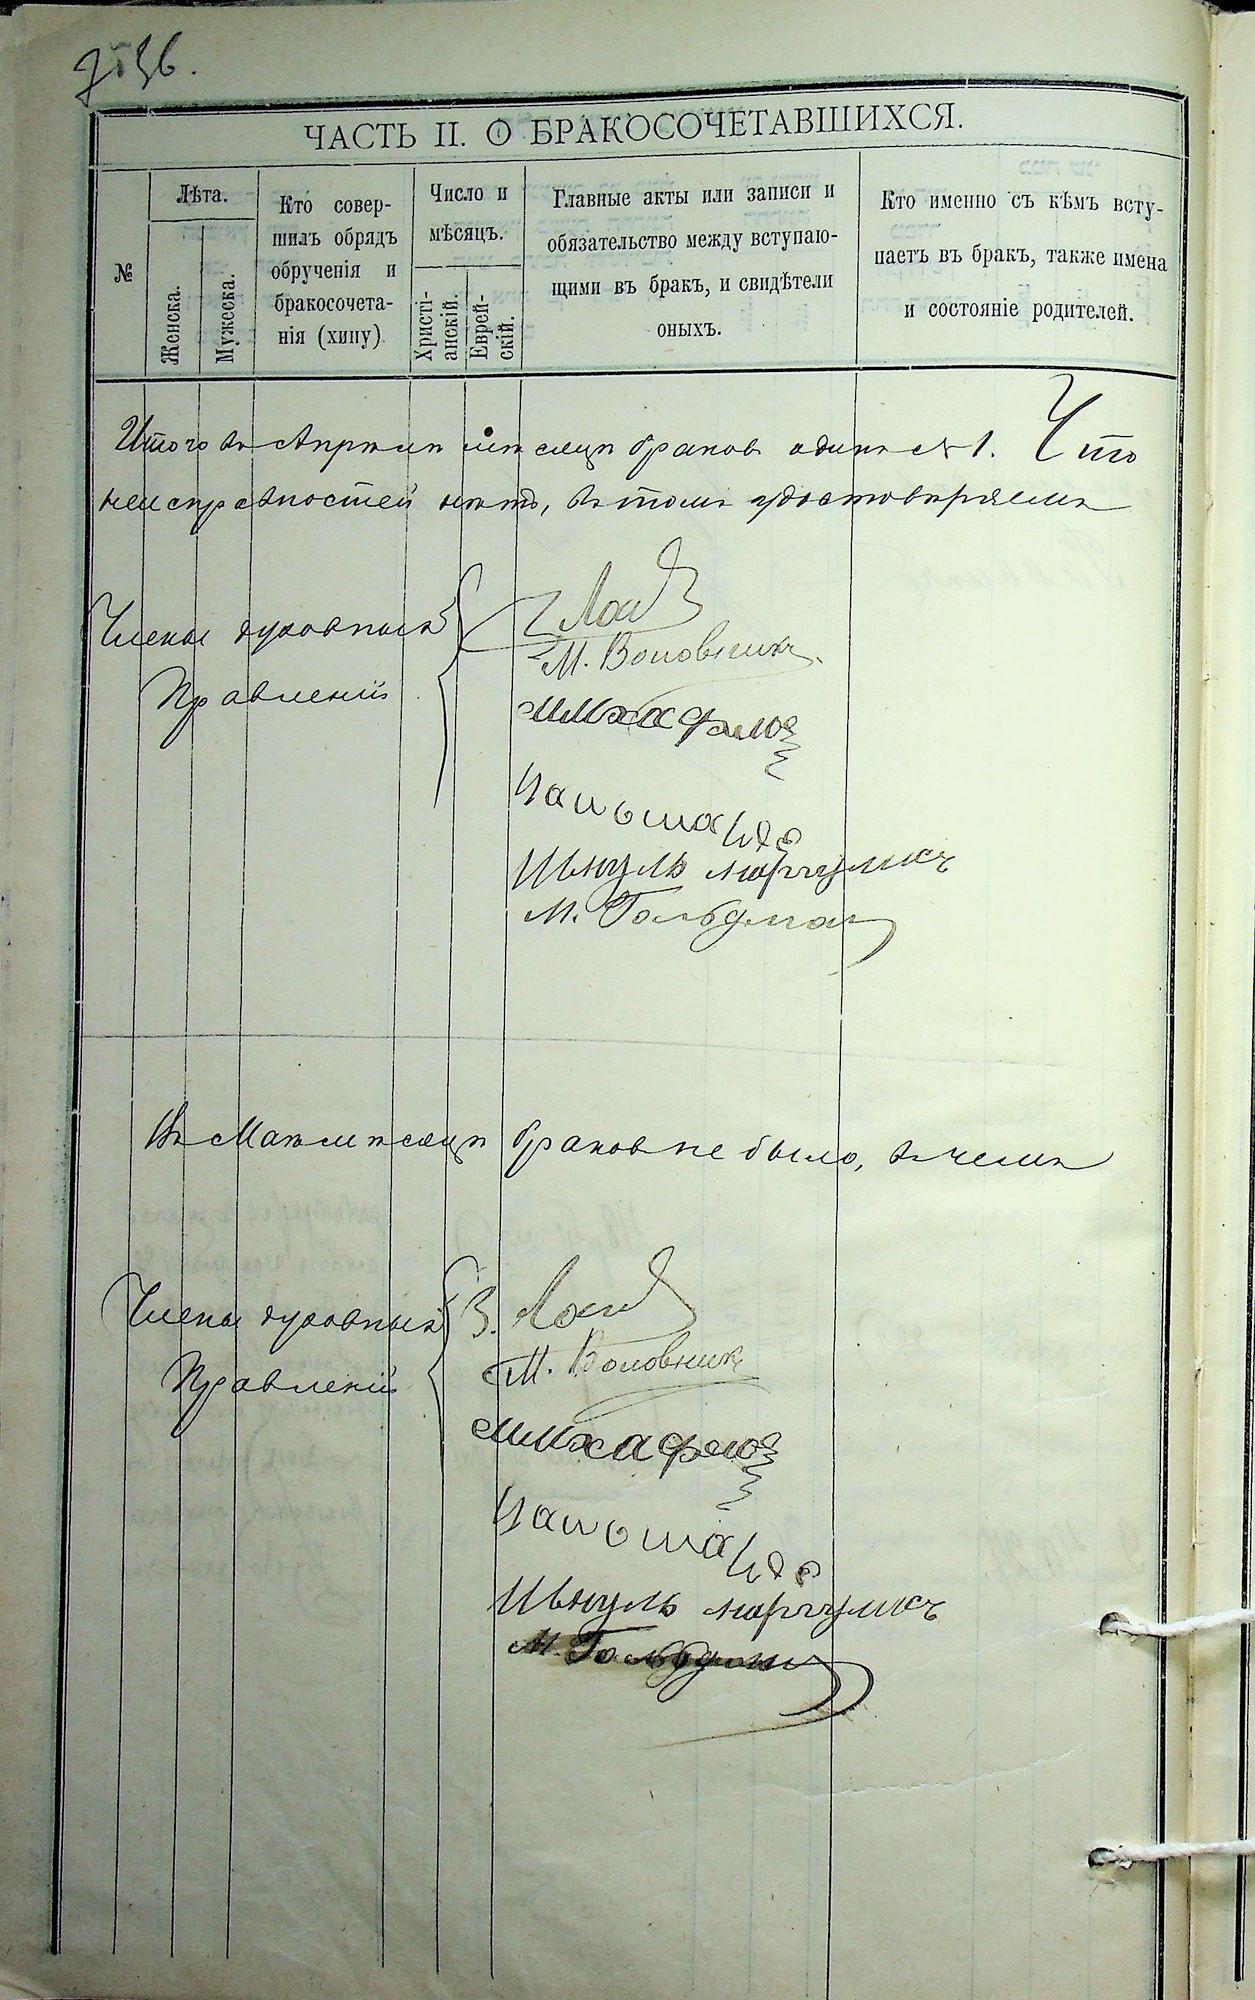 ЧАСТЬ II. О БРАКОСОЧЕТАВШИХСЯ.
№
Лѣта.
Женска.
Мужеска.
Кто совер-
шилъ обрядъ
обрученія и
бракосочета-
нія (хипу)
Число и
мѣсяцъ.
Христі-
анскій.
Еврей-
скій.
Главные акты или записи и
обязательство между вступаю-
щими въ бракъ, и свидѣтели
оныхъ.
Кто именно съ кѣмъ всту-
паетъ въ бракъ, также имена
и состояніе родителей.
Итого въ Апрѣлѣ мѣсяцѣ браковъ одинъ №1. Что
неисправностей нѣтъ, въ томъ удостовѣряемъ
Члены духовныхъ
Правленій
М. Воловникъ
М. Гольдман
Въ Маѣ мѣсяцѣ браковъ не было, въ чемъ
Члены духовныхъ
Правленій
З.
М. Воловникъ
М. Гольдман